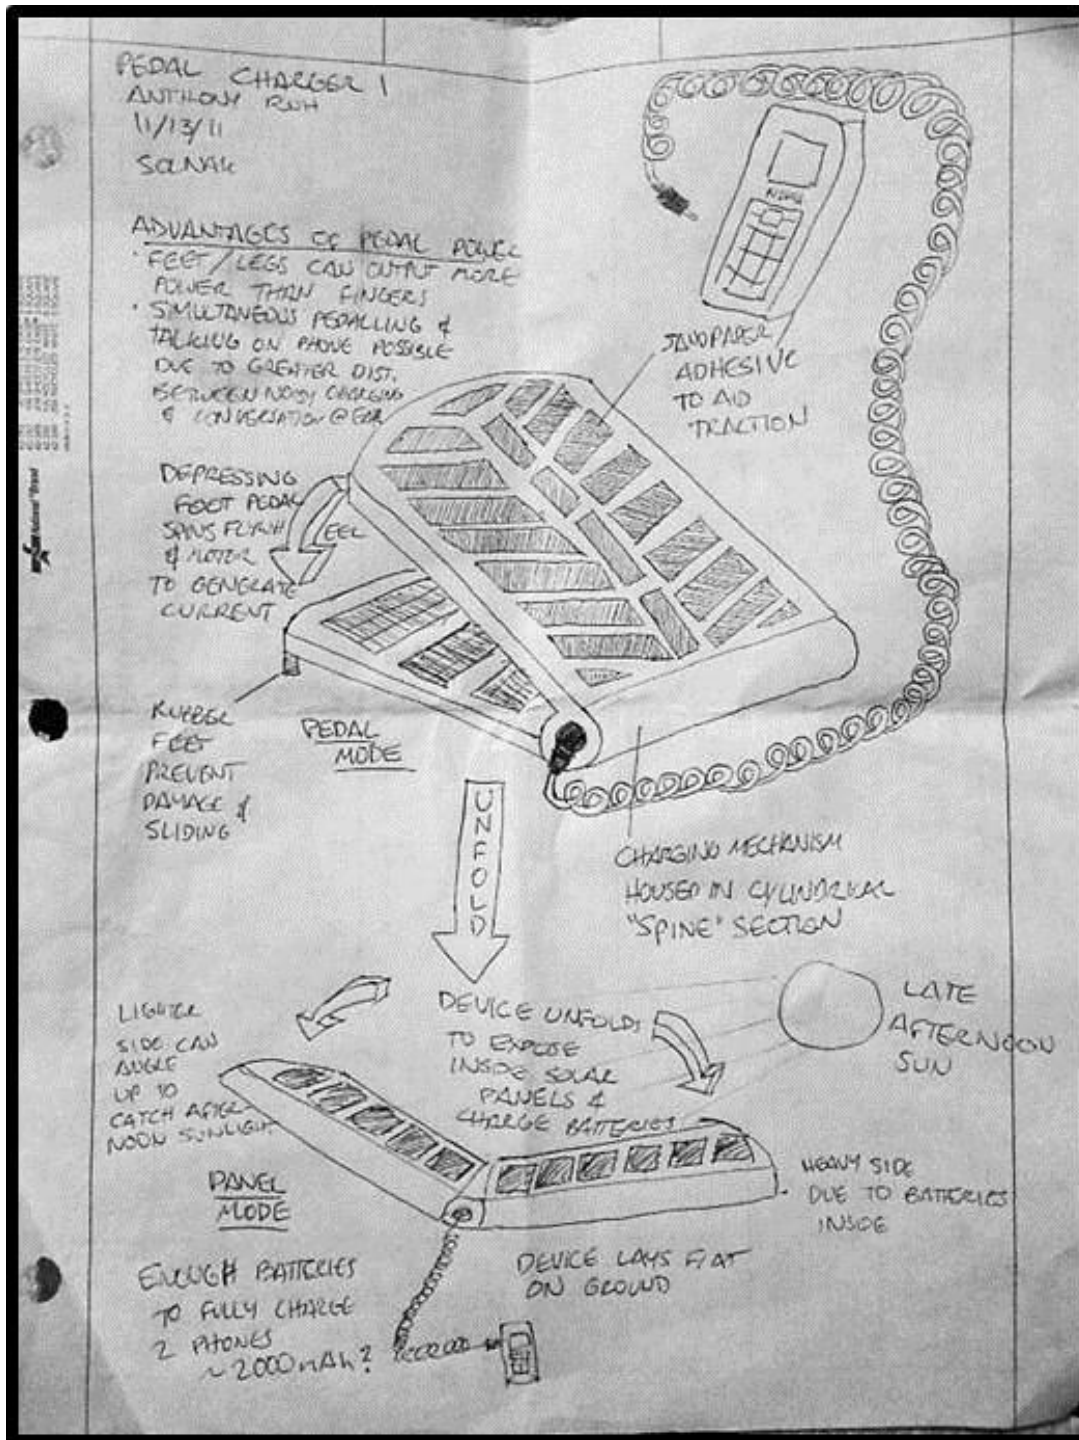 PEDAL CHARGER 1
ANTHONY
11/13/11
ADVANTAGES OF PEDAL POWER
• FEET/LEGS CAN OUTPUT MORE
POWER THAN FINGERS
• SIMULTANEOUS PEDALLING &
TALKING ON PHONE POSSIBLE
DUE TO GREATER DIST.
BETWEEN NOISY CHARGING
& CONVERSATION @ EAR
SANDPAPER
ADHESIVE
TO AID
TRACTION
DEPRESSING
FOOT PEDAL
SANS FLYWHEEL
& MOTOR
TO GENERATE
CURRENT
RUBBER
FEET
PREVENT
DAMAGE &
SLIDING
PEDAL
MODE
UNFOLD
CHARGING MECHANISM
HOUSED IN CYLINDRICAL
"SPINE" SECTION
LIGHTER
SIDE CAN
ANGLE
UP TO
CATCH AFTER-
NOON SUNLIGHT
DEVICE UNFOLDS
TO EXPOSE
INSIDE SOLAR
PANELS &
CHARGE BATTERIES
LATE
AFTERNOON
SUN
PANEL
MODE
HEAVY SIDE
DUE TO BATTERIES
INSIDE
DEVICE LAYS FLAT
ON GROUND
ENOUGH BATTERIES
TO FULLY CHARGE
2 PHONES
~2000mAh?